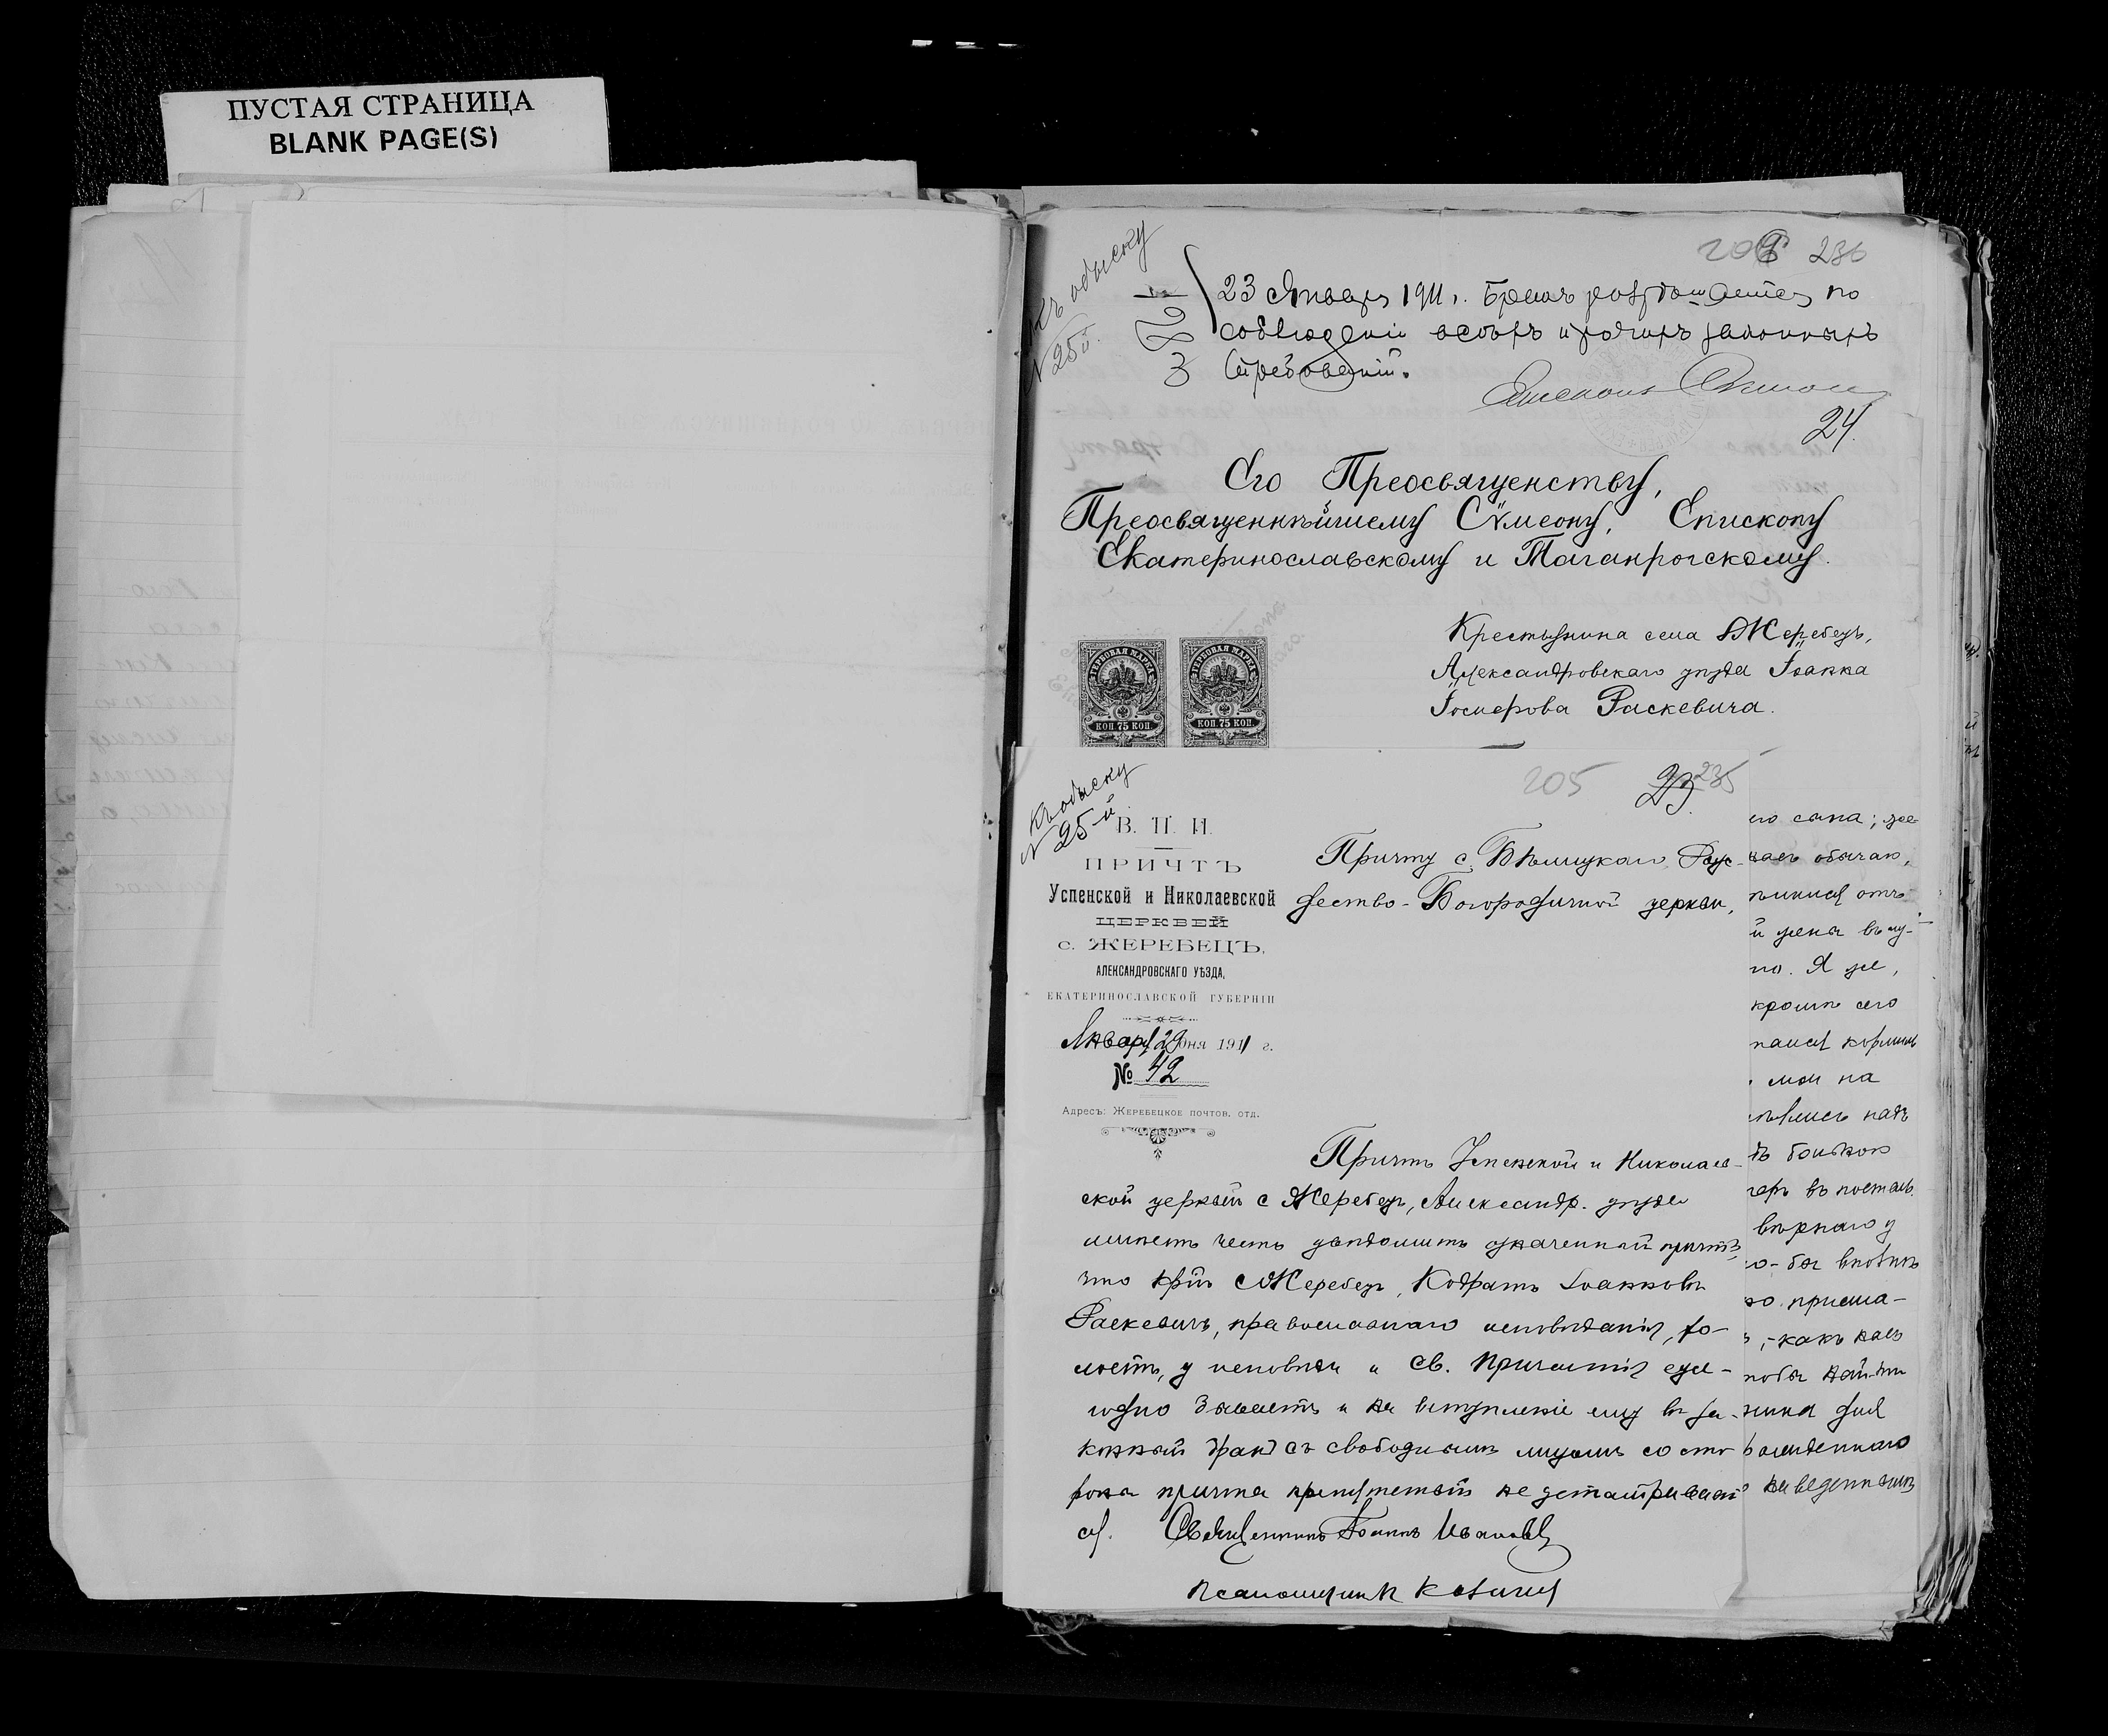 ПУСТАЯ СТРАНИЦА
BLANK PAGE(S)
Къ обыску
№ 25й.
206 236
3861
23 Января 1911 г. Бракъ разрѣшается по
соблюденіи всѣхъ прочихъ законныхъ
требованій.
Епископъ Симеонъ
24.
Его Преосвященству,
Преосвященнѣйшему Сѵмеону, Епископу
Екатеринославскому и Таганрогскому.
Крестьянина села Жеребецъ,
Александровскаго уѣзда Іоанна
Іосифова Раскевича.
ГЕРБОВАЯ МАРКА
КОП. 75 КОП.
ГЕРБОВАЯ МАРКА
КОП. 75 КОП.
Къ обыску
№ 25-й
205 23 235
В. П. И.
ПРИЧТЪ
Успенской и Николаевской
ЦЕРКВЕЙ
с. ЖЕРЕБЕЦЪ,
АЛЕКСАНДРОВСКАГО УѢЗДА,
ЕКАТЕРИНОСЛАВСКОЙ ГУБЕРНІИ
Января 29 дня 1911 г.
№ 42
Адресъ: Жеребецкое почтов. отд.
Причту с. Бѣлицкаго Рож-
дество-Богородичной церкви,
Причтъ Успенской и Николаев-
ской церквей с Жеребецъ, Александр. уѣзда
имѣетъ честь увѣдомить означенный причтъ,
что кр-нъ с Жеребецъ, Кодратъ Іоанновъ
Раскевичъ, православнаго исповѣданія, хо-
лостъ, у исповѣди и св. Причастія еже-
годно бываетъ и на вступленіе ему въ за-
конный бракъ съ свободнымъ лицомъ со сто-
роны причта препятствій не усматривает-
ся. Священникъ Іоаннъ Ивановъ
Псаломщикъ
его сына; же
чаю,
отъ
й жена въ му-
но. Я же,
кромѣ сего
мои на
надъ
больною
вѣрнаго у
но пріиска-
какъ насъ
найти
для